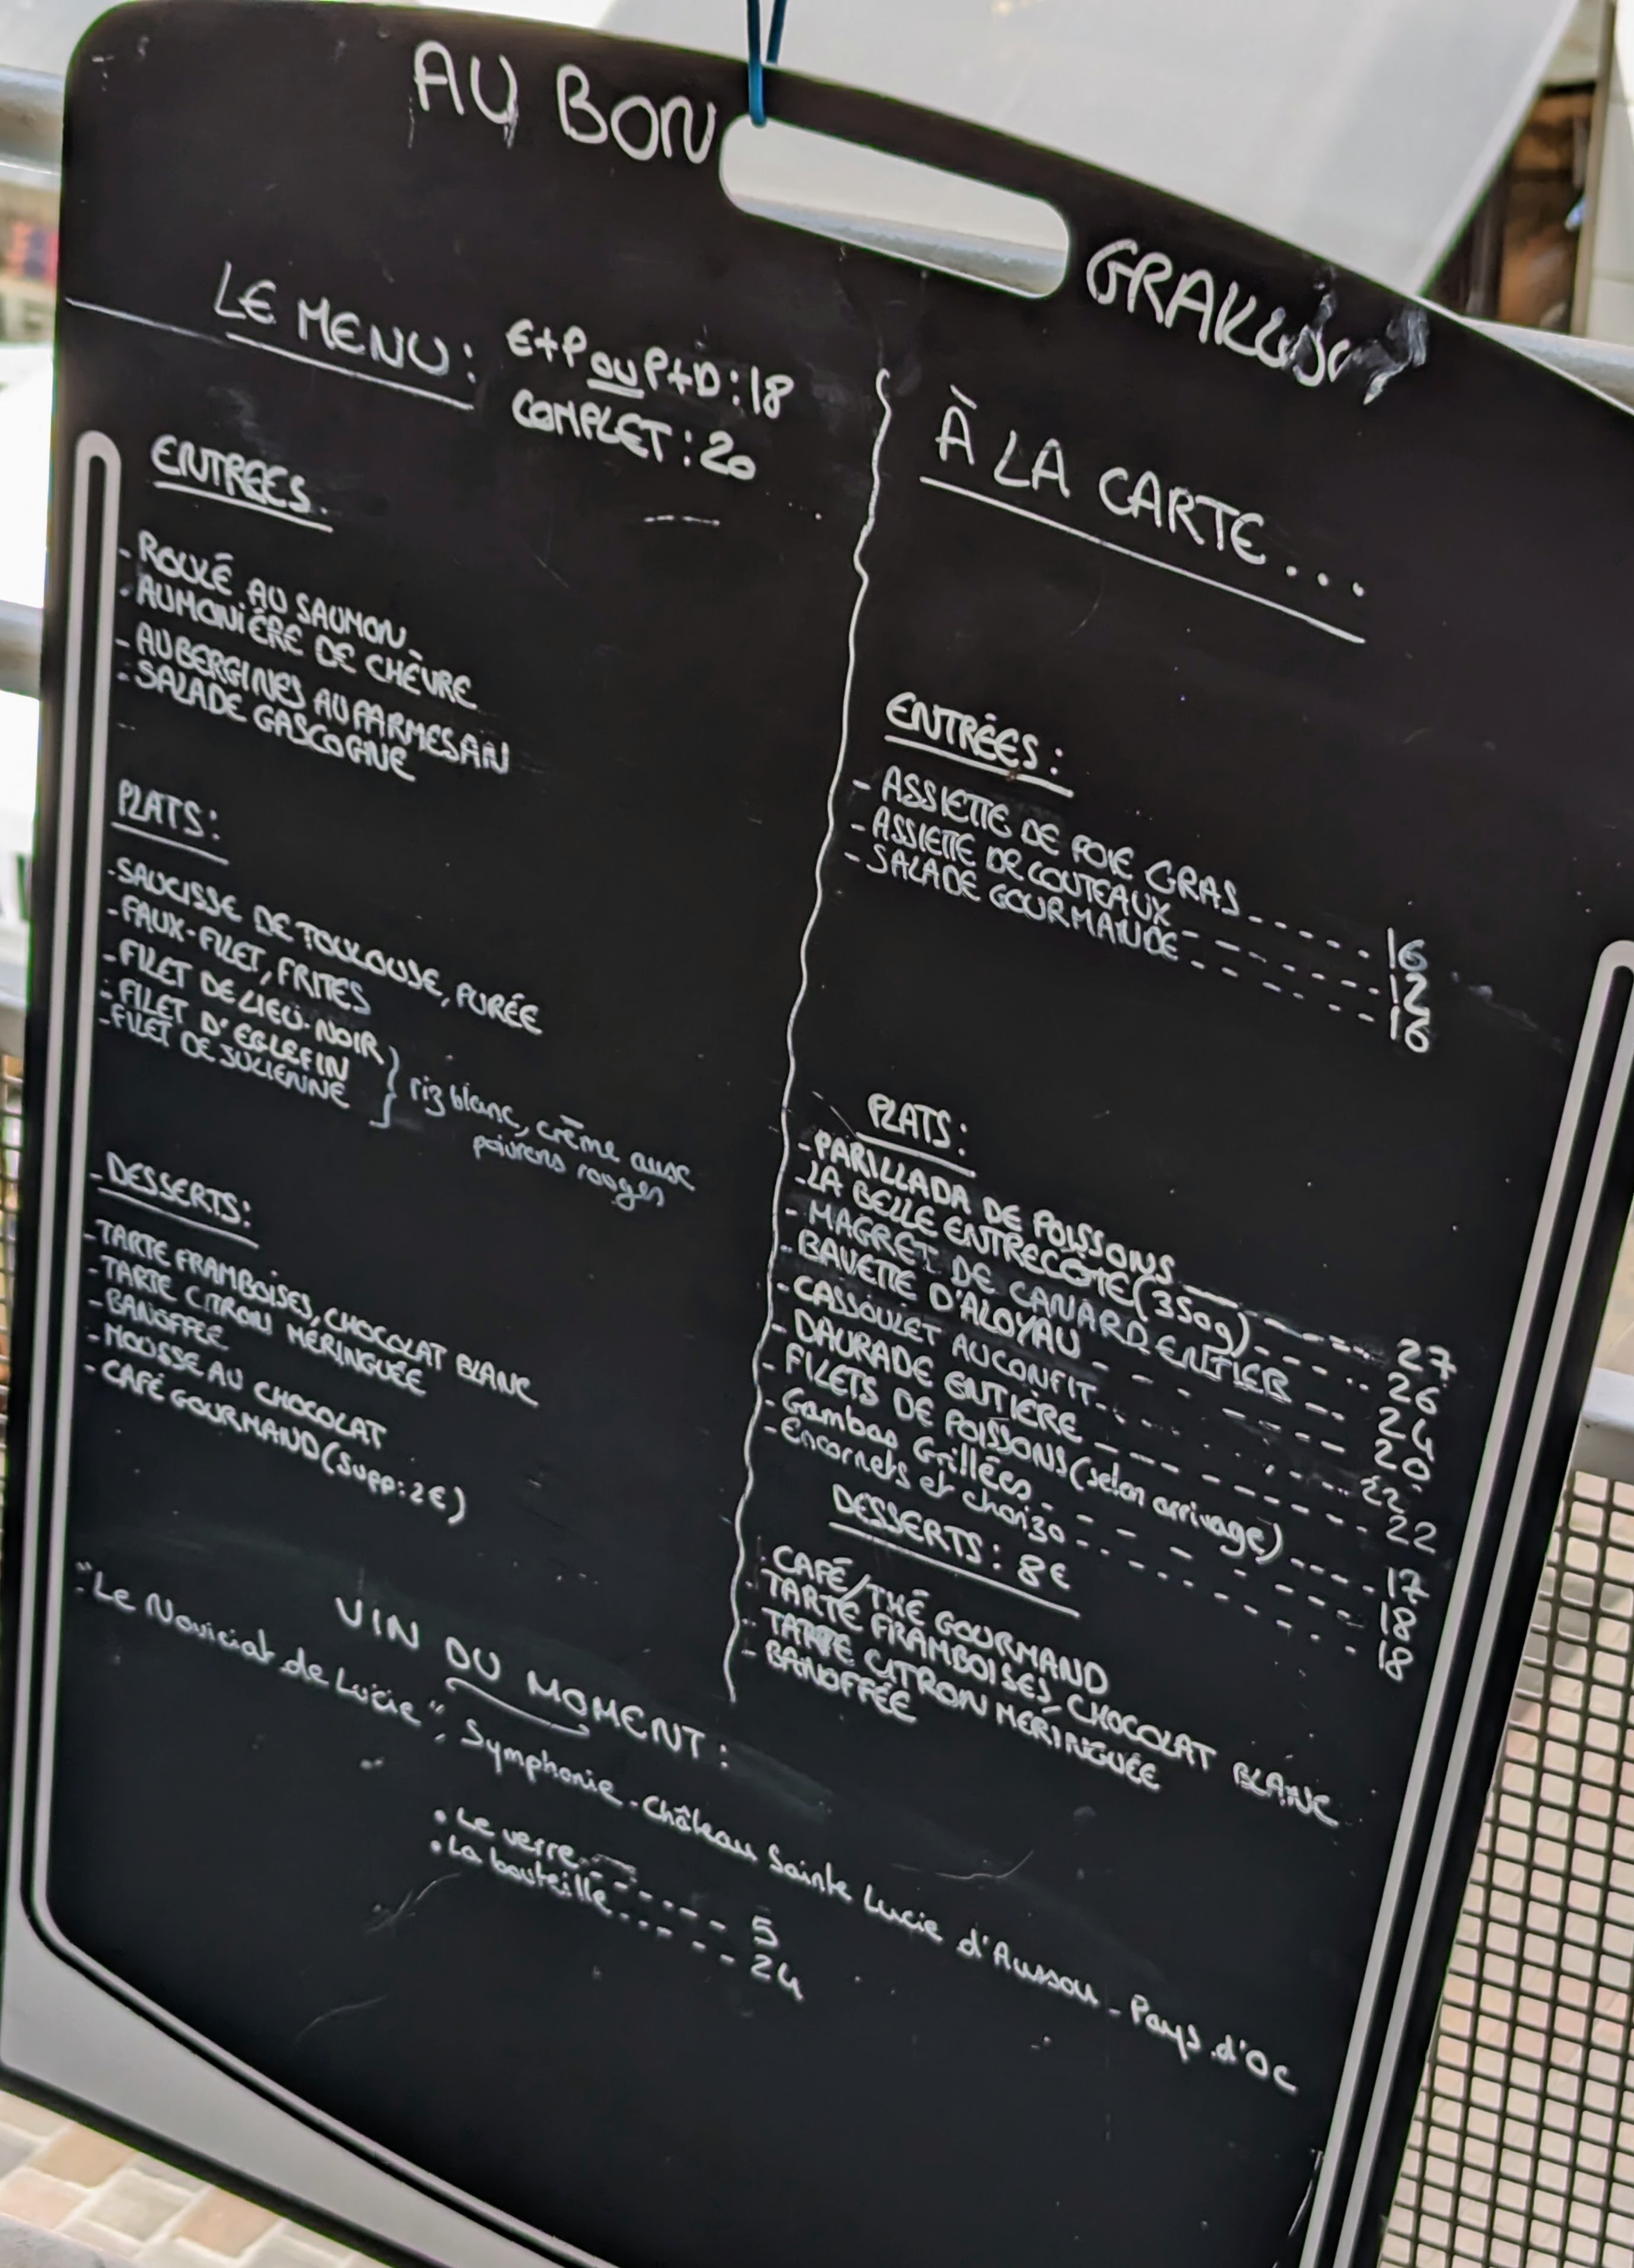 AU BON
LE MENU : E+P OU P+D : 18
COMPLET : 20
ENTREES.
- ROULÉ AU SAUMON
- AUMONIÉRE DE CHÈVRE
- AUBERGINES AU PARMESAN
- SALADE GASCOGNE
PLATS :
- SAUCISSE DE TOULOUSE, PURÉE
- FAUX-FILET, FRITES
- FILET DE LIEU-NOIR
- FILET D'EGLEFIN
- FILET DE JULIENNE
} riz blanc, crème aux
poivrons rouges
- DESSERTS :
- TARTE FRAMBOISES, CHOCOLAT BLANC
- TARTE CITRON MERINGUÉE
- BANOFFEE
- MOUSSE AU CHOCOLAT
- CAFÉ GOURMAND (supp : 2€)
À LA CARTE...
ENTRÉES :
- ASSIETTE DE FOIE GRAS ------ 16
- ASSIETTE DE COUTEAUX ------ 12
- SALADE GOURMANDE ------ 16
PLATS :
- PARILLADA DE POISSONS ------ 27
- LA BELLE ENTRECOTE (350g) ------ 26
- MAGRET DE CANARD ENTIER ------ 24
- BAVETTE D'ALOYAU ------ 20
- CASSOULET AU CONFIT ------ 22
- DAURADE ENTIÈRE ------ 22
- FILETS DE POISSONS (selon arrivage) ------ 17
- Gambas Grillées ------ 18
- Encornets et chorizo ------ 18
DESSERTS : 8€
- CAFÉ/THÉ GOURMAND
- TARTE FRAMBOISES, CHOCOLAT BLANC
- TARTE CITRON MERINGUÉE
- BANOFFÉE
VIN DU MOMENT :
"Le Noviciat de Lucie", Symphonie - Château Sainte Lucie d'Aussou - Pays d'Oc
• Le verre ------ 5
• La bouteille ------ 24